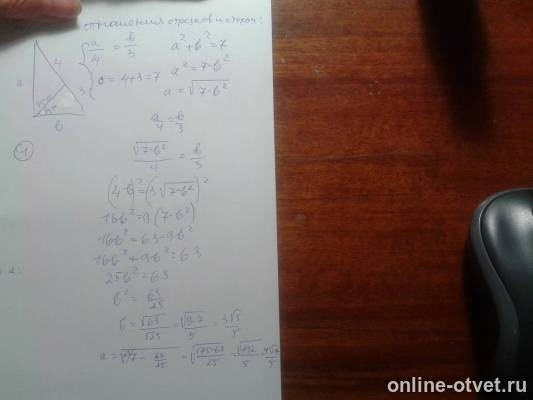 отношения отрезков
a/4 = b/3
a² + b² = 7
c = 4+3 = 7
a² = 7-b²
a = √(7-b²)
a
4
3
b
a/4 = b/3
√(7-b²)/4 = b/3
(4b)² = (3√(7-b²))²
16b² = 9(7-b²)
16b² = 63-9b²
16b² + 9b² = 63
25b² = 63
b² = 63/25
b = √63/√25 = √9·7/5 = 3√5/5
a = √(7 - 63/25) = √((175-63)/25) = √112/5 = 4√7/5
online-otvet.ru